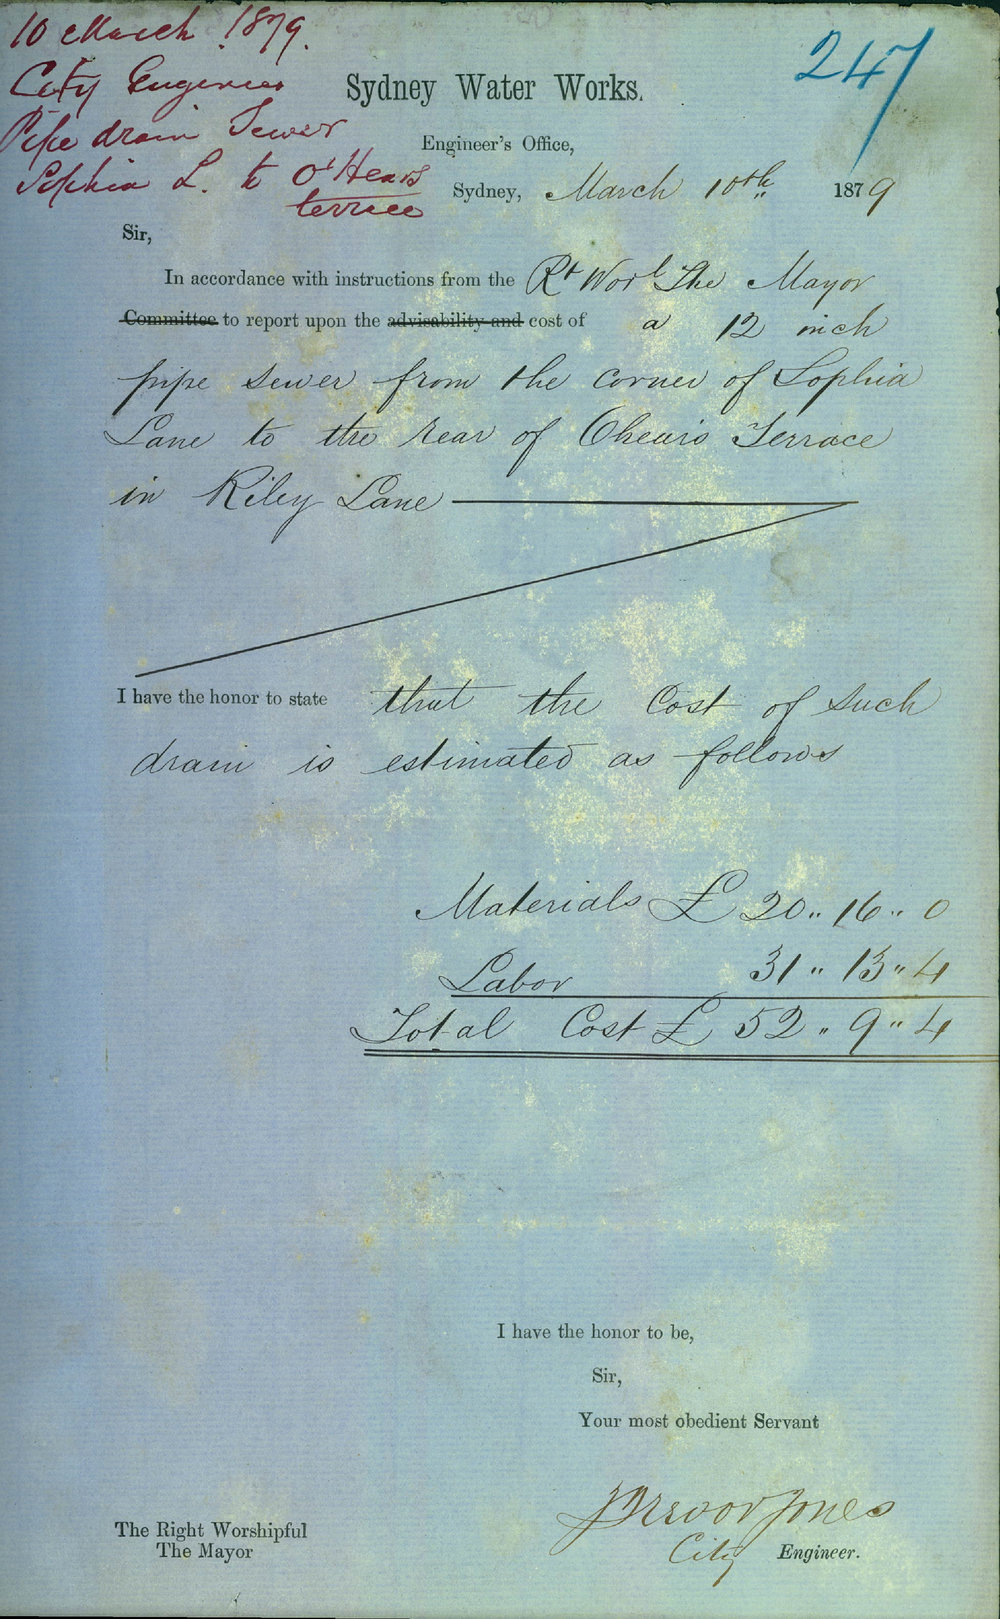 10 March 1879.
City Engineer
Pipe drain Sewer
Sophia L. to O'Hears
terrace
247
Sydney Water Works.
Engineer's Office,
Sydney, March 10th 1879
Sir,
In accordance with instructions from the Rt Worl The Mayor
Committee to report upon the advisability and cost of a 12 inch
pipe sewer from the corner of Sophia
Lane to the rear of Ohearo Terrace
in Riley Lane
I have the honor to state that the Cost of such
drain is estimated as follows
Materials £ 20 " 16 " 0
Labor 31 " 13 " 4
Total Cost £ 52 " 9 " 4
I have the honor to be,
Sir,
Your most obedient Servant
Trevor Jones
City Engineer.
The Right Worshipful
The Mayor